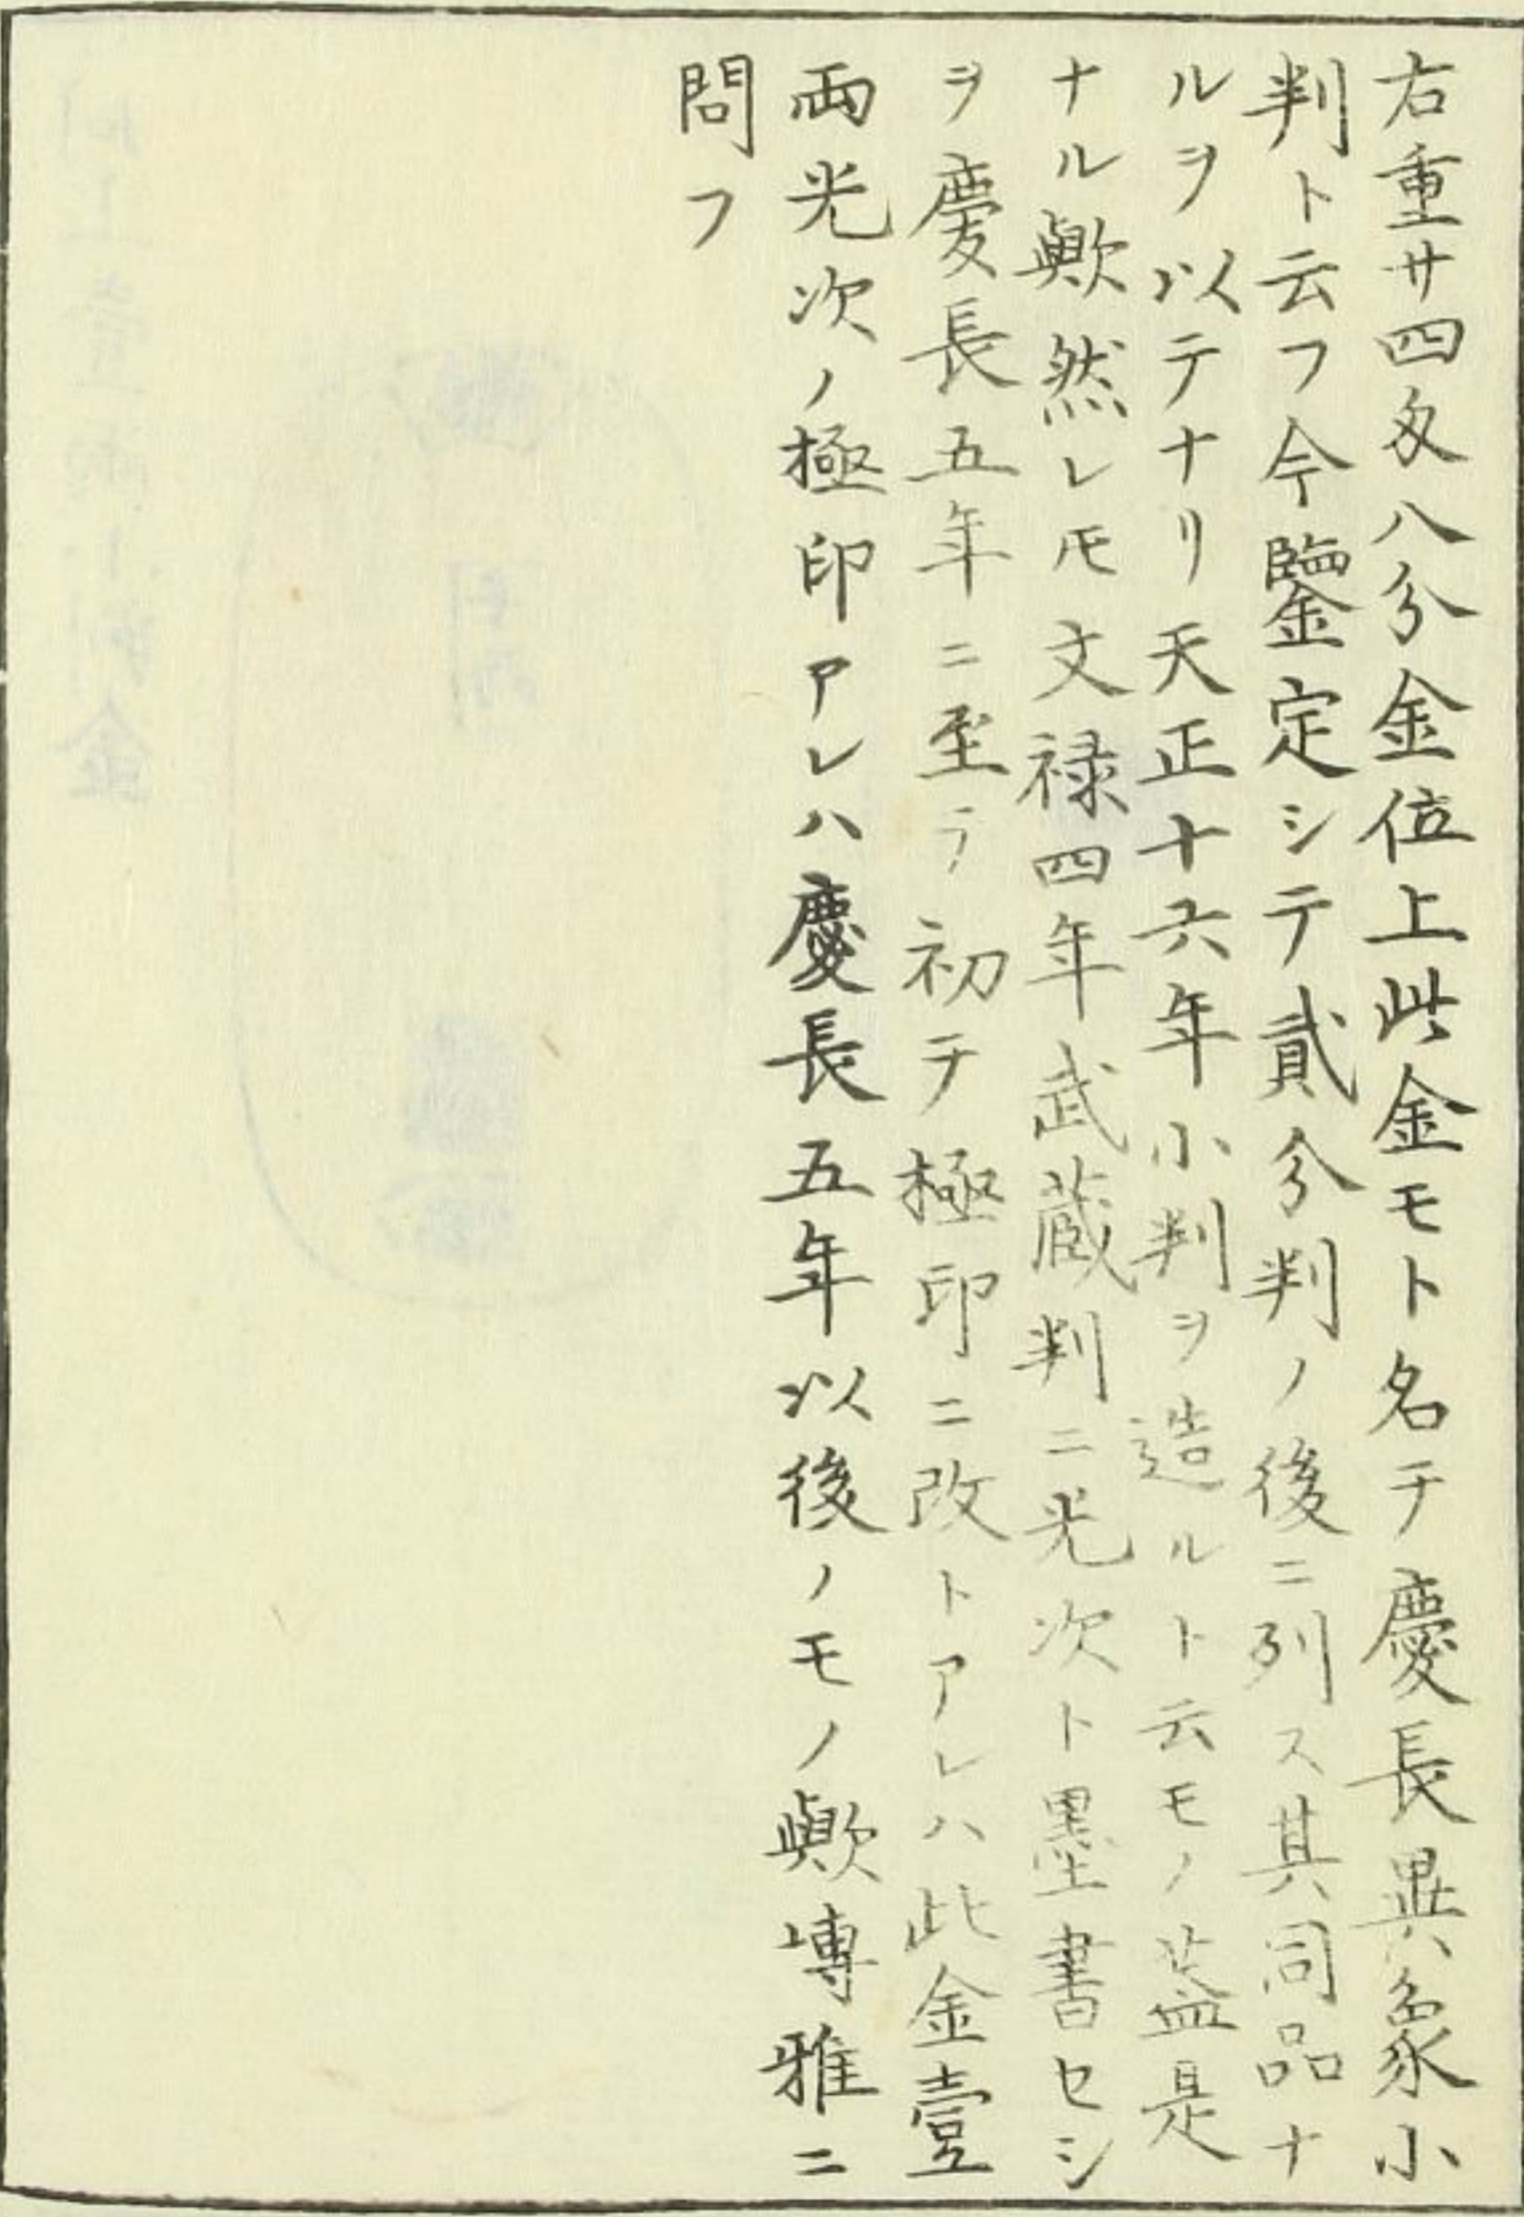 右重サ四匁八分金位上此金モト名テ慶長異象小
判ト云フ今鑒定シテ貳分判ノ後ニ列ス其同品ナ
ルヲ以テナリ天正十六年小判ヲ造ルト云モノ蓋是
ナル歟然レ𪜈文禄四年武蔵判ニ光次ト墨書セシ
ヲ慶長五年ニ至テ初テ極印ニ改トアレハ此金壹
両光次ノ極印アレハ慶長五年以後ノモノ歟博雅ニ
問フ